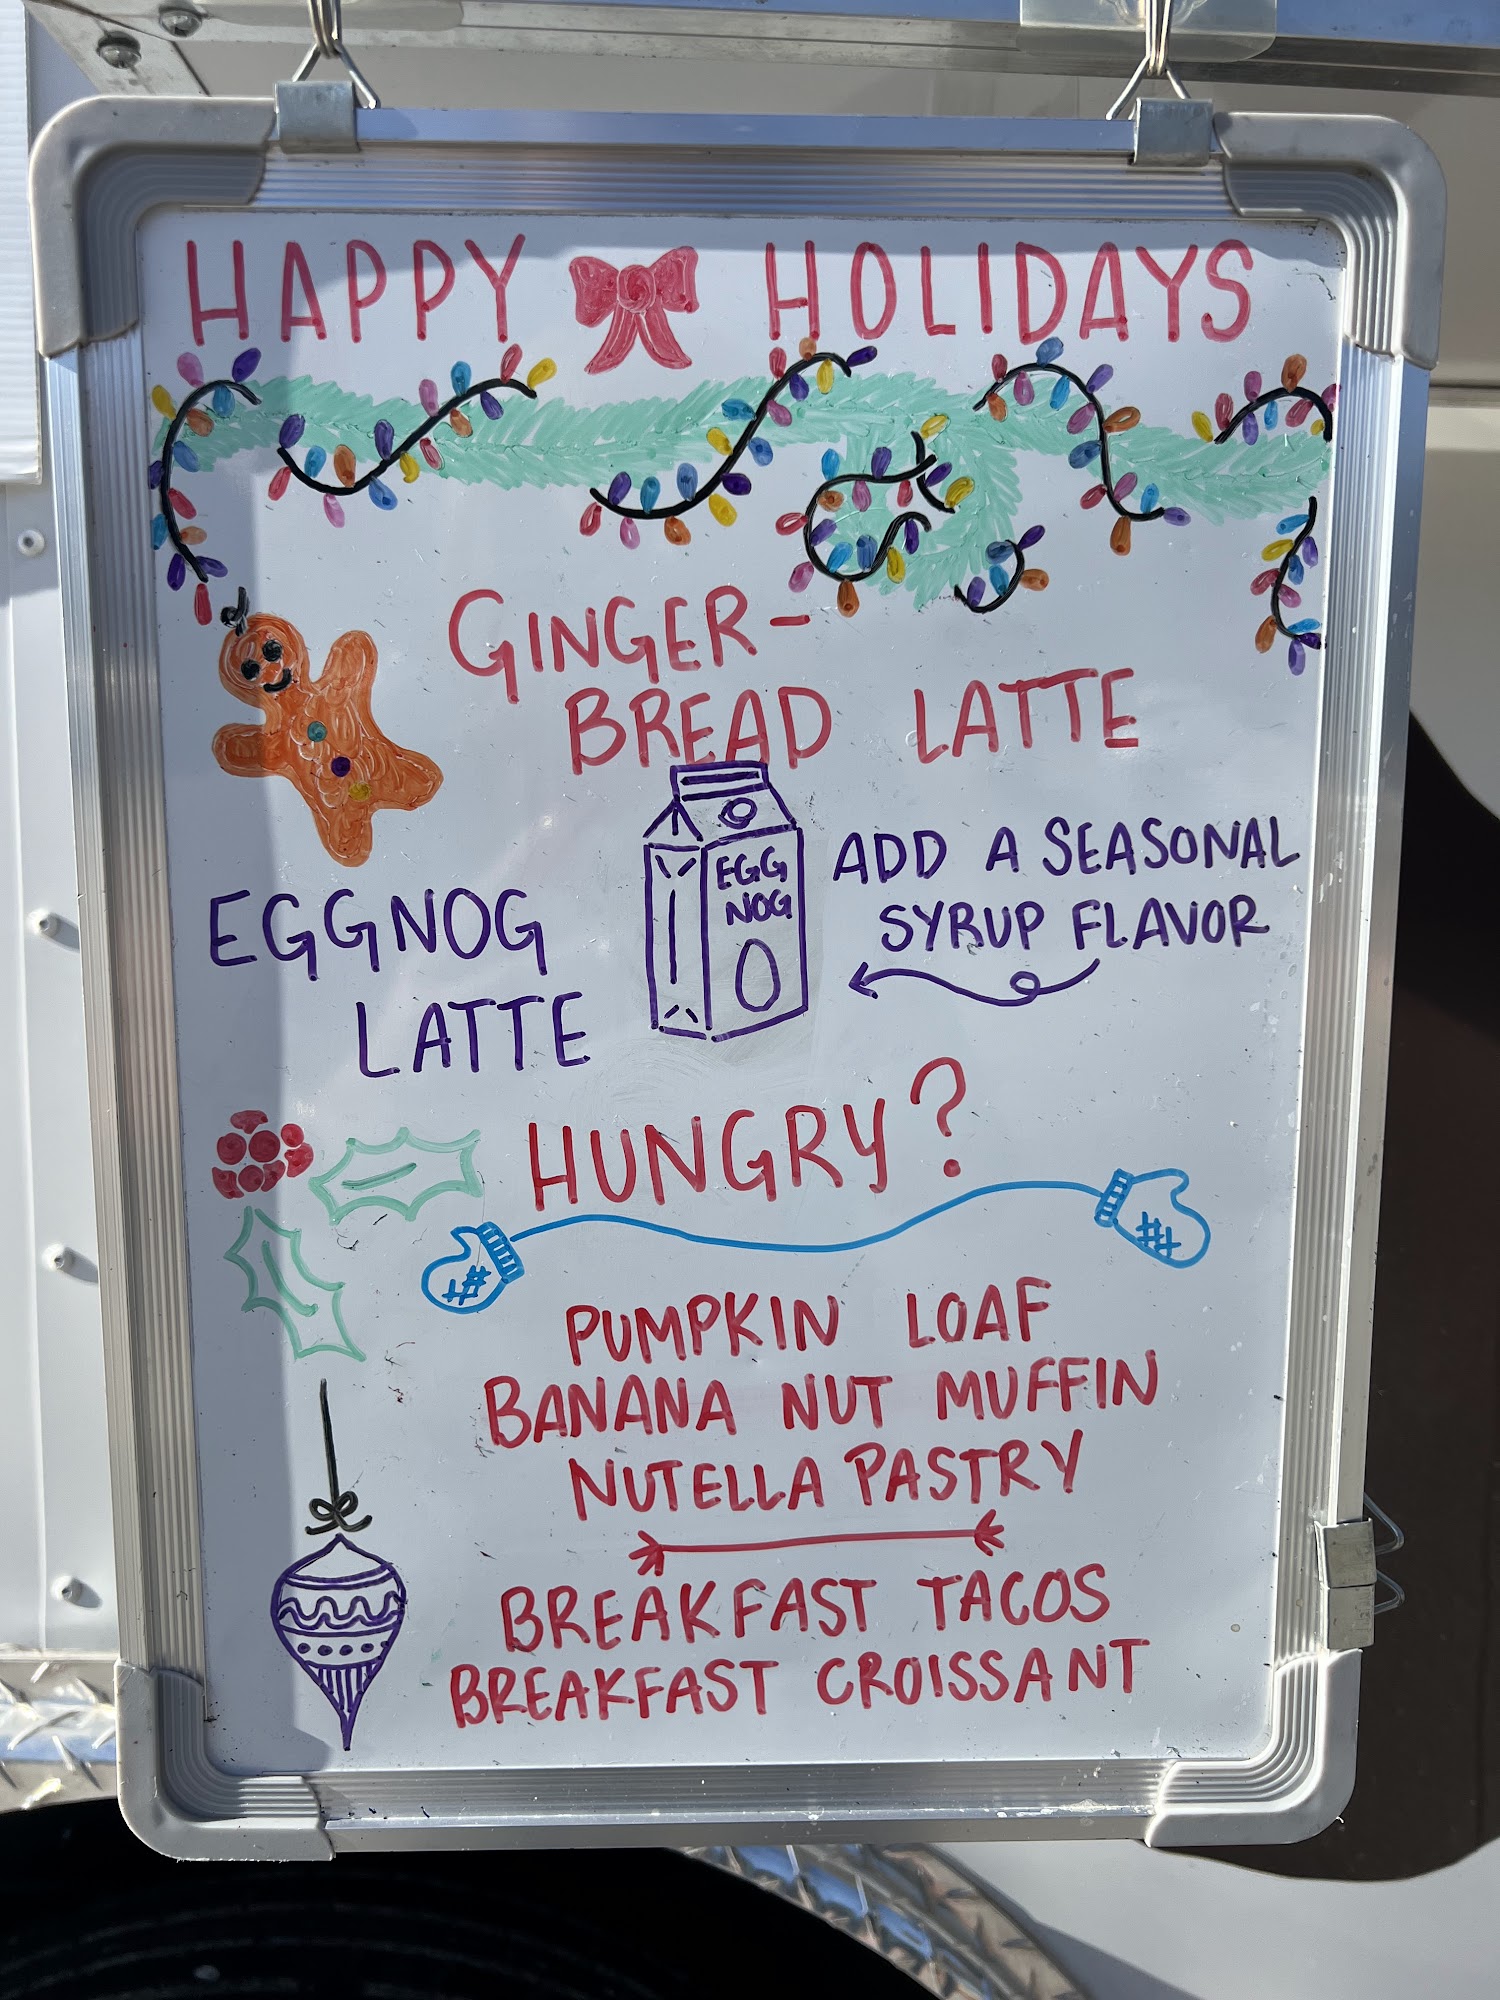 HAPPY HOLIDAYS
GINGER-
BREAD LATTE
EGG
NOG
ADD A SEASONAL
SYRUP FLAVOR
EGGNOG
LATTE
HUNGRY?
PUMPKIN LOAF
BANANA NUT MUFFIN
NUTELLA PASTRY
BREAKFAST TACOS
BREAKFAST CROISSANT